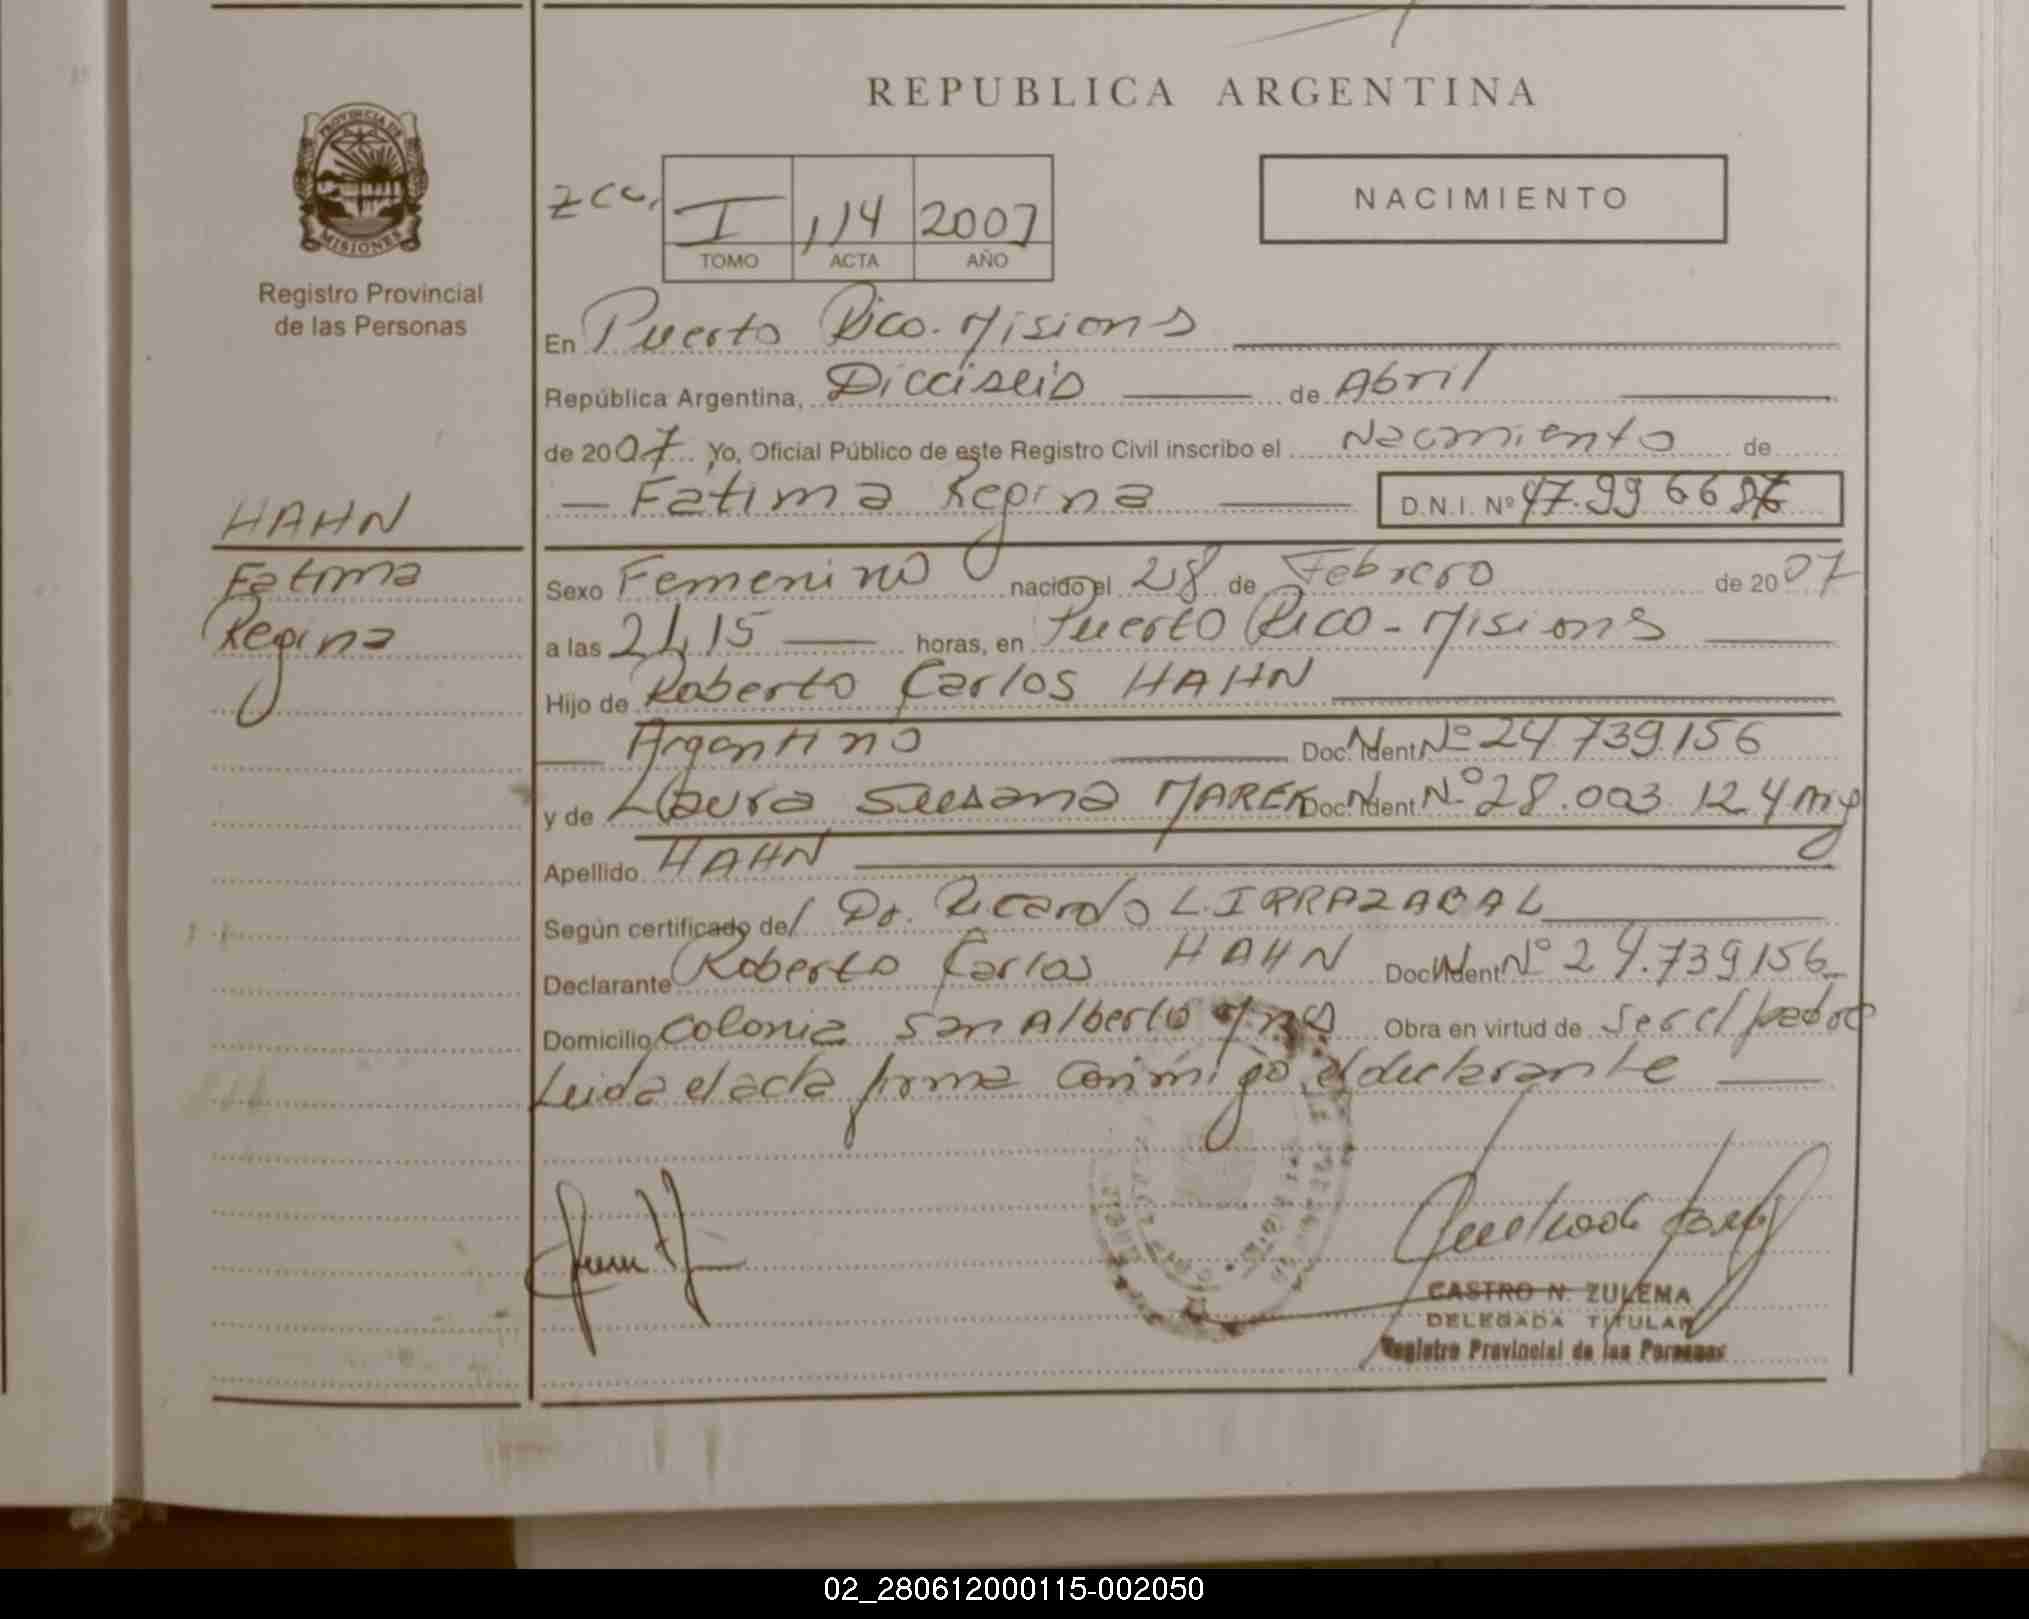 REPUBLICA ARGENTINA
PROVINCIA DE
MISIONES
Registro Provincial
de las Personas
I 114 2007
TOMO ACTA AÑO
NACIMIENTO
En Puerto Rico. Misiones
República Argentina, Dieciseis de Abril
de 2007 Yo, Oficial Público de este Registro Civil inscribo el Nacimiento de
Fatima Regina D.N.I. Nº
HAHN
Fatima
Regina
Sexo Femenino nacido el 28 de Febrero de 2007
a las 21,15 horas, en Puerto Rico - Misiones
Hijo de Roberto Carlos HAHN
Argentino Doc. Ident. Nº 24.739.156
y de Laura Susana MAREK Doc. Ident. Nº 28.003.124
Apellido HAHN
Según certificado del Dr. Ricardo L. IRRAZABAL
Declarante Roberto Carlos HAHN Doc. Ident. Nº 24.739156
Domicilio Colonia San Alberto Mnes Obra en virtud de ser el padre
Leida el acta firma conmigo, el declarante
CASTRO N. ZULEMA
DELEGADA TITULAR
Registro Provincial de las Personas
02_280612000115-002050